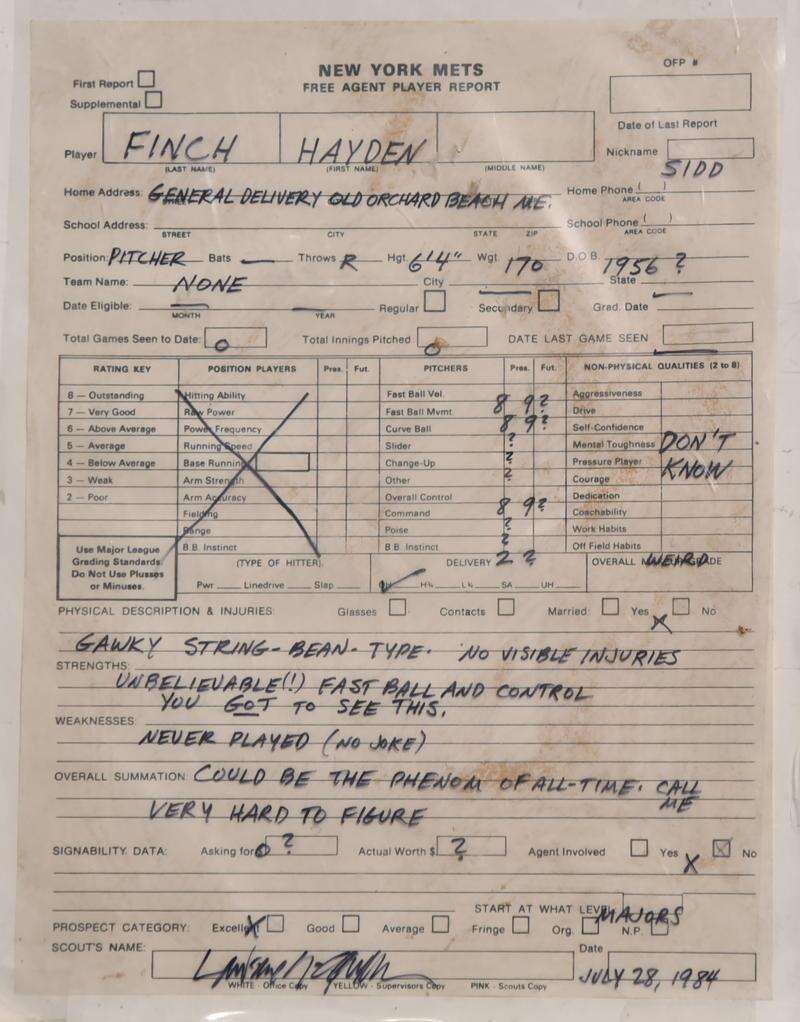 NEW YORK METS
FREE AGENT PLAYER REPORT
OFP #
First Report
Supplemental
Date of Last Report
Player FINCH HAYDEN
(LAST NAME) (FIRST NAME) (MIDDLE NAME)
Nickname SIDD
Home Address: GENERAL DELIVERY OLD ORCHARD BEACH ME. Home Phone ( )
AREA CODE
School Address: School Phone ( )
STREET CITY STATE ZIP AREA CODE
Position: PITCHER Bats — Throws R Hgt. 6'4" Wgt. 170 D.O.B. 1956 ?
Team Name: NONE City — State —
Date Eligible: — — Regular Secondary Grad. Date —
MONTH YEAR
Total Games Seen to Date: 0 Total Innings Pitched 0 DATE LAST GAME SEEN —
RATING KEY POSITION PLAYERS Pres. Fut. PITCHERS Pres. Fut. NON-PHYSICAL QUALITIES (2 to 8)
8 — Outstanding Hitting Ability Fast Ball Vel. 8 9? Aggressiveness
7 — Very Good Raw Power Fast Ball Mvmt. 8 9? Drive
6 — Above Average Power Frequency Curve Ball ? Self-Confidence
5 — Average Running Speed Slider ? Mental Toughness DON'T
4 — Below Average Base Running Change-Up ? Pressure Player KNOW
3 — Weak Arm Strength Other Courage
2 — Poor Arm Accuracy Overall Control 8 9? Dedication
Fielding Command ? Coachability
Range Poise ? Work Habits
B.B. Instinct B.B. Instinct 2 ? Off Field Habits
Use Major League
Grading Standards.
Do Not Use Plusses
or Minuses.
(TYPE OF HITTER) DELIVERY OVERALL WEIRD
Pwr Linedrive Slap H¾ L¾ SA UH
PHYSICAL DESCRIPTION & INJURIES: Glasses Contacts Married: Yes X No
GAWKY STRING-BEAN-TYPE. NO VISIBLE INJURIES
STRENGTHS:
UNBELIEVABLE(!) FAST BALL AND CONTROL
YOU GOT TO SEE THIS.
WEAKNESSES:
NEVER PLAYED (NO JOKE)
OVERALL SUMMATION COULD BE THE PHENOM OF ALL-TIME. CALL
ME
VERY HARD TO FIGURE
SIGNABILITY DATA: Asking for 0 ? Actual Worth $ ? Agent Involved Yes X No
START AT WHAT LEVEL MAJORS
PROSPECT CATEGORY: Excellent X Good Average Fringe Org. N.P.
SCOUT'S NAME: Date
JULY 28, 1984
WHITE - Office Copy YELLOW - Supervisors Copy PINK - Scouts Copy